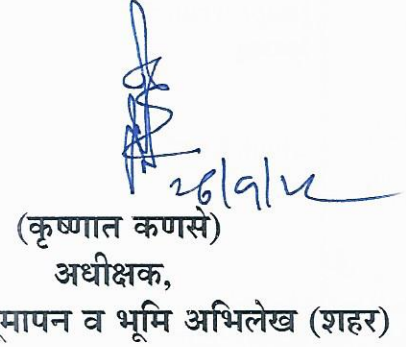 (कृष्णात कणसे)
अधीक्षक,
मापन व भूमि अभिलेख (शहर)